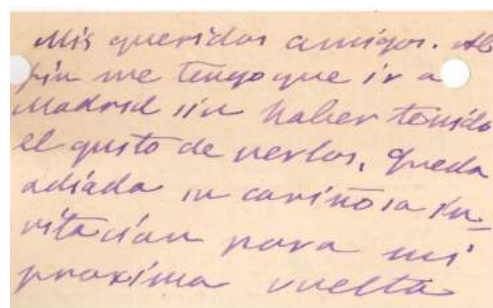 Mis queridos amigos. Al
fin me tengo que ir a
Madrid sin haber tenido
el gusto de verlos. Queda
adiada su cariñosa in-
vitación para mi
proxima vuelta